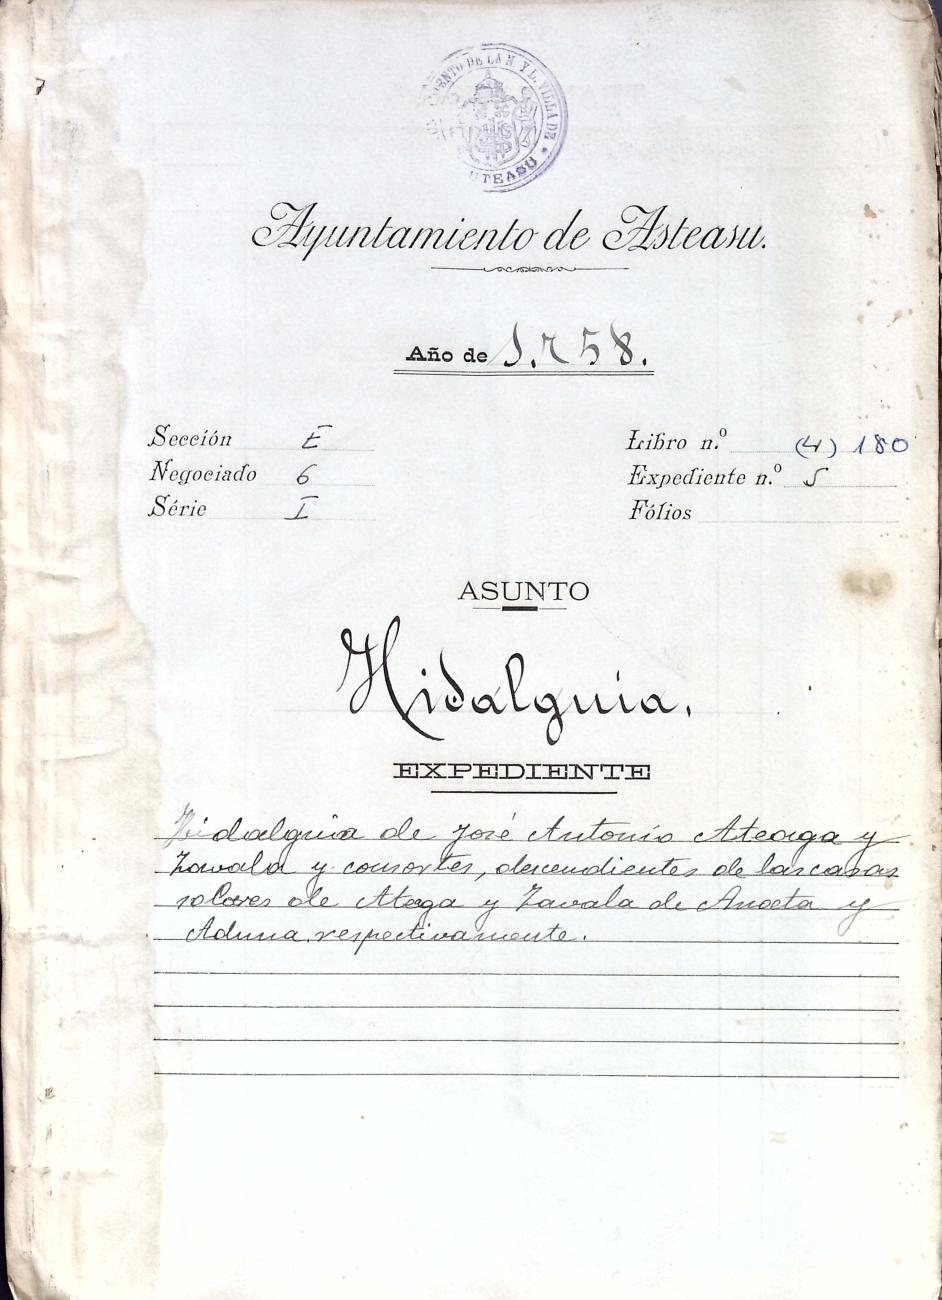 ENTO DE LA N Y L. VILLA DE
TEASU
Ayuntamiento de Asteasu.
Año de 1.758.
Sección E
Negociado 6
Série I
Libro n.º (4) 180
Expediente n.º 5
Fólios
ASUNTO
Hidalguia.
EXPEDIENTE
Hidalguia de José Antonio Ateaga y
Zavala y consortes, descendientes de las casas
solares de Ateaga y Zavala de Anoeta y
Aduna respectivamente.